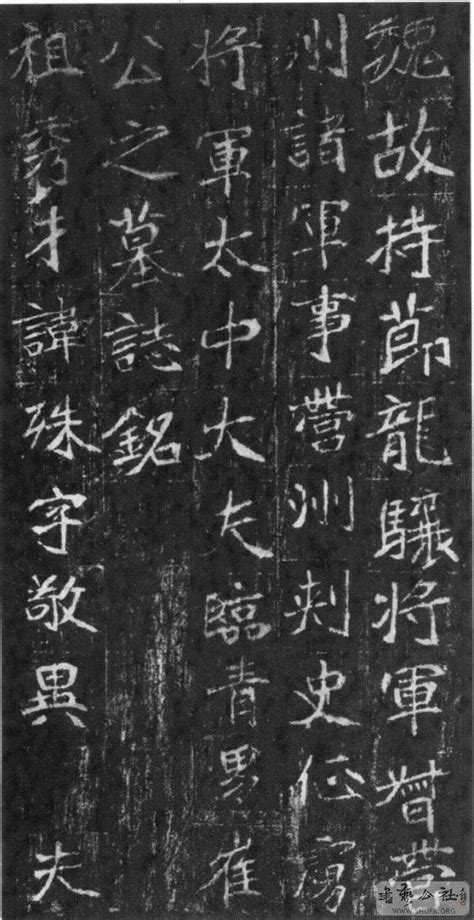 魏故持節龍驤将軍督營
州諸軍事營州刾史征虜
将軍太中大夫臨青男崔
公之墓誌銘
祖秀才諱殊字敬異 夫
書藝公社
WWW.SHUFA.ORG